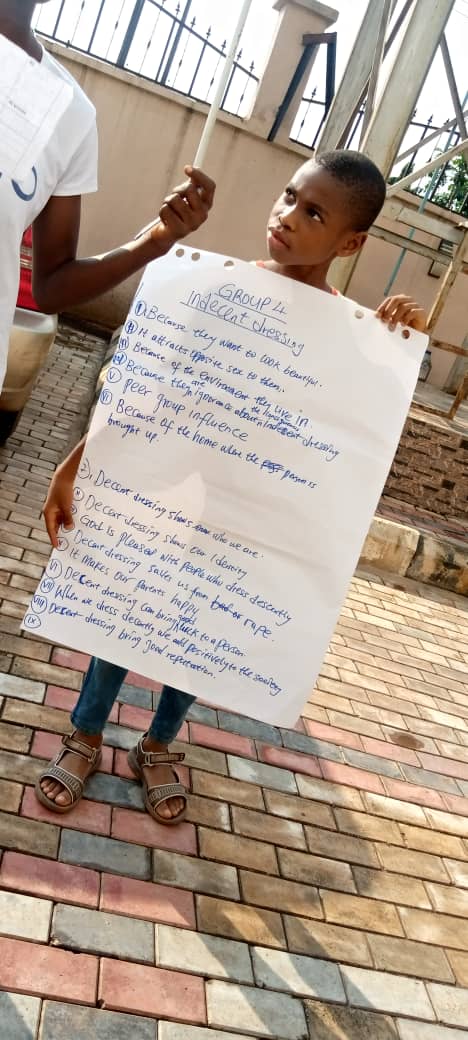 GROUP 4
Indecent dressing
1
(i) Because they want to look beautiful.
(ii) It attracts opposite sex to them.
(iii) Because of the environment they live in.
(iv) Because they are ignorance about indecent dressing
(v) peer group influence
(vi) Because of the home where the person is
brought up
2, Decent dressing shows who we are.
Decent dressing shows our Identity
God is pleased with people who dress descently
Decent dressing saves us from rape
It makes our parents happy
(vi) Decent dressing can bring good luck to a person
(vii) When we dress decently we add positively to the society
(viii) Decent dressing bring good reputation.
(ix)